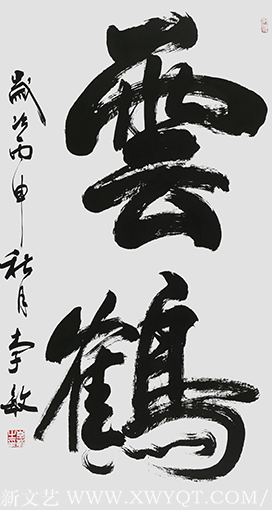 雲鶴
歲次丙申秋月李敏
新文艺 WWW.XWYQT.COM/